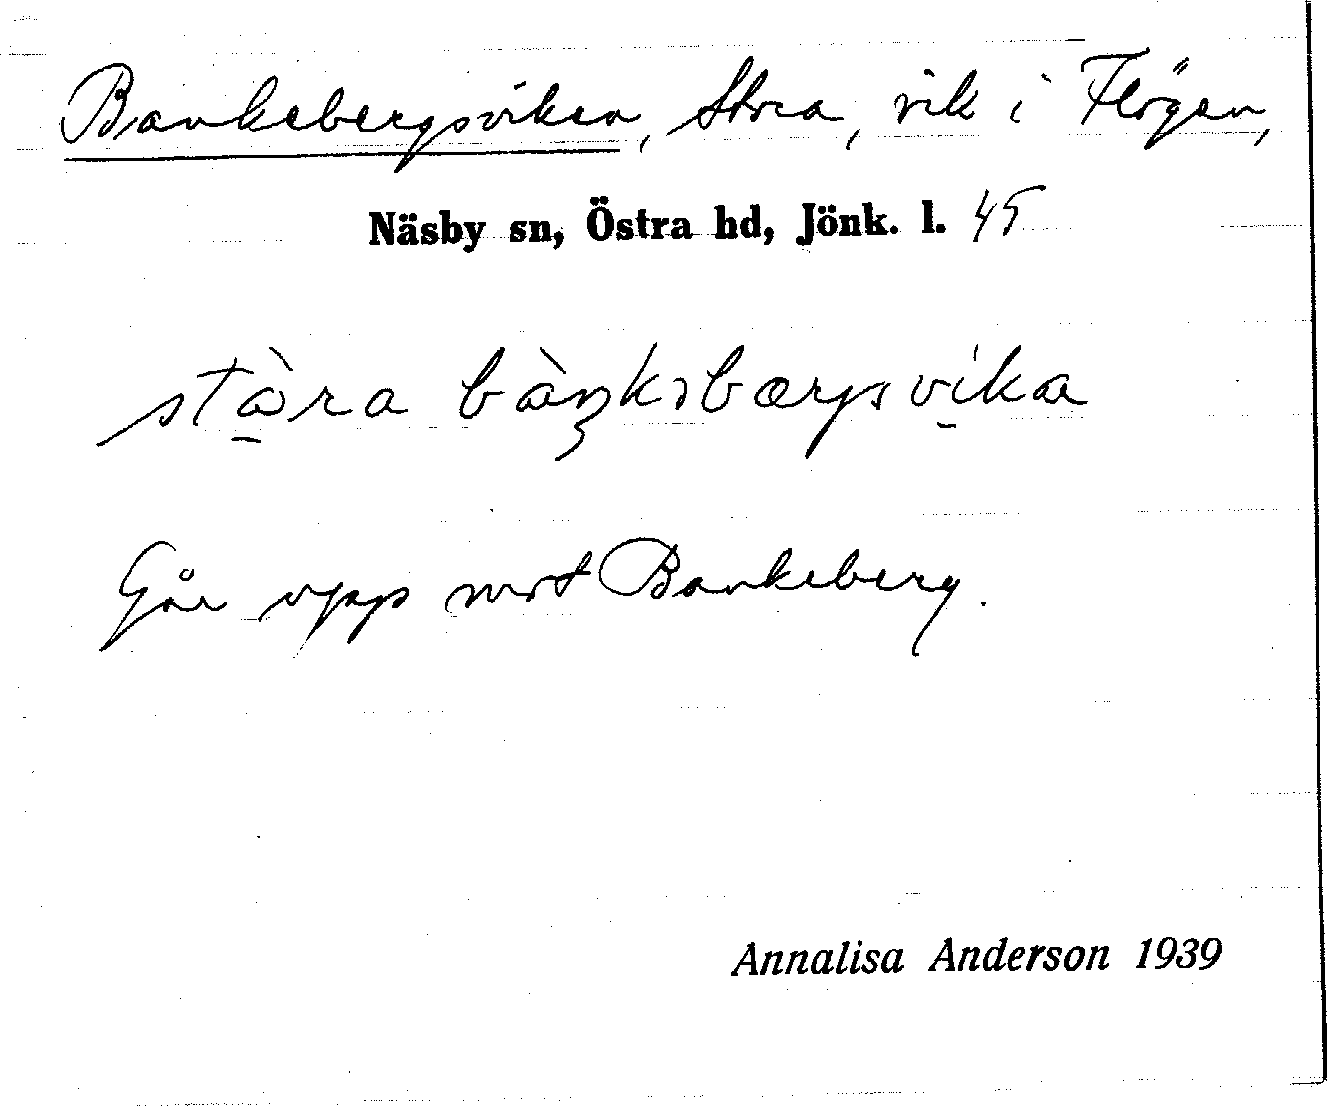 Bankebergsviken, Stora, vik i Flögen,
Näsby sn, Östra hd, Jönk. l. 45
stàra bàŋkəbærjsvika
Går upp mot Bankeberg.
Annalisa Anderson 1939